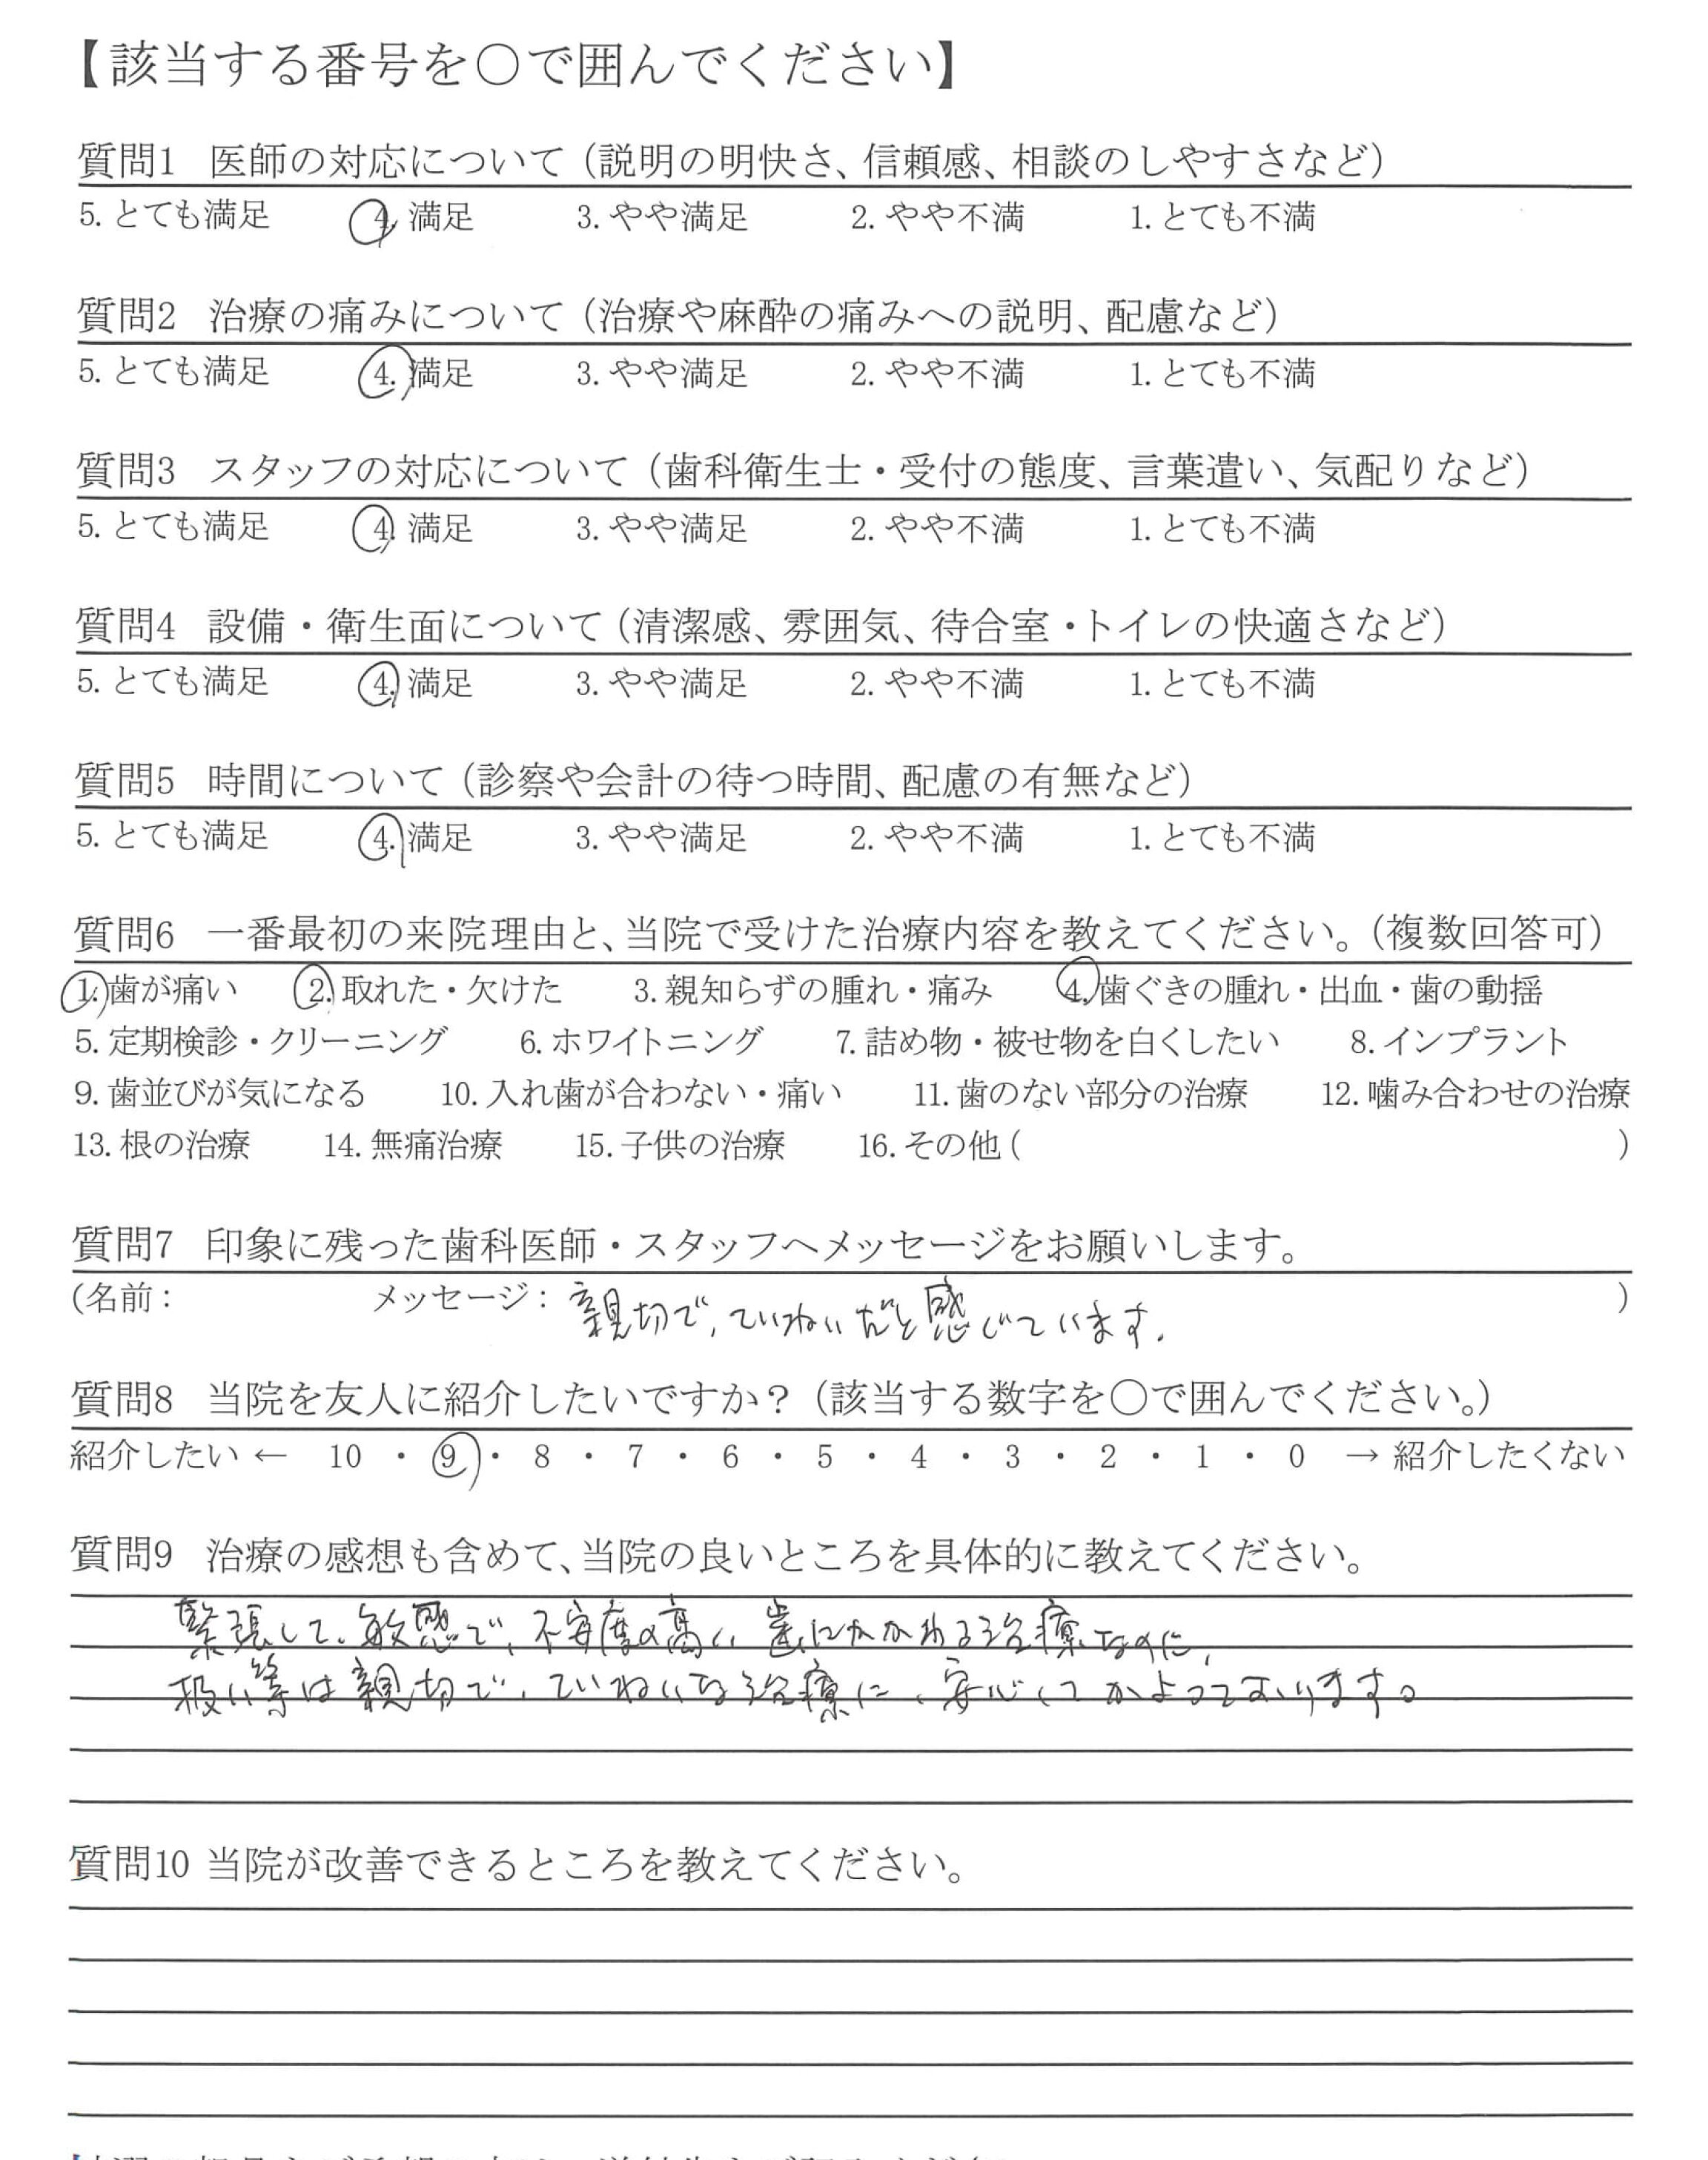 【該当する番号を○で囲んでください】
質問1 医師の対応について（説明の明快さ、信頼感、相談のしやすさなど）
5. とても満足 4. 満足 3. やや満足 2. やや不満 1. とても不満
質問2 治療の痛みについて（治療や麻酔の痛みへの説明、配慮など）
5. とても満足 4. 満足 3. やや満足 2. やや不満 1. とても不満
質問3 スタッフの対応について（歯科衛生士・受付の態度、言葉遣い、気配りなど）
5. とても満足 4. 満足 3. やや満足 2. やや不満 1. とても不満
質問4 設備・衛生面について（清潔感、雰囲気、待合室・トイレの快適さなど）
5. とても満足 4. 満足 3. やや満足 2. やや不満 1. とても不満
質問5 時間について（診察や会計の待つ時間、配慮の有無など）
5. とても満足 4. 満足 3. やや満足 2. やや不満 1. とても不満
質問6 一番最初の来院理由と、当院で受けた治療内容を教えてください。（複数回答可）
1. 歯が痛い 2. 取れた・欠けた 3. 親知らずの腫れ・痛み 4. 歯ぐきの腫れ・出血・歯の動揺
5. 定期検診・クリーニング 6. ホワイトニング 7. 詰め物・被せ物を白くしたい 8. インプラント
9. 歯並びが気になる 10. 入れ歯が合わない・痛い 11. 歯のない部分の治療 12. 噛み合わせの治療
13. 根の治療 14. 無痛治療 15. 子供の治療 16. その他（ ）
質問7 印象に残った歯科医師・スタッフへメッセージをお願いします。
（名前： メッセージ：親切で、ていねいだと感じています。）
質問8 当院を友人に紹介したいですか？（該当する数字を○で囲んでください。）
紹介したい ← 10 ・ 9 ・ 8 ・ 7 ・ 6 ・ 5 ・ 4 ・ 3 ・ 2 ・ 1 ・ 0 → 紹介したくない
質問9 治療の感想も含めて、当院の良いところを具体的に教えてください。
緊張して、敏感で、不安度の高い、歯にかかわる治療なのに、
扱い等は親切で、ていねいな治療に、安心してかよっております。
質問10 当院が改善できるところを教えてください。